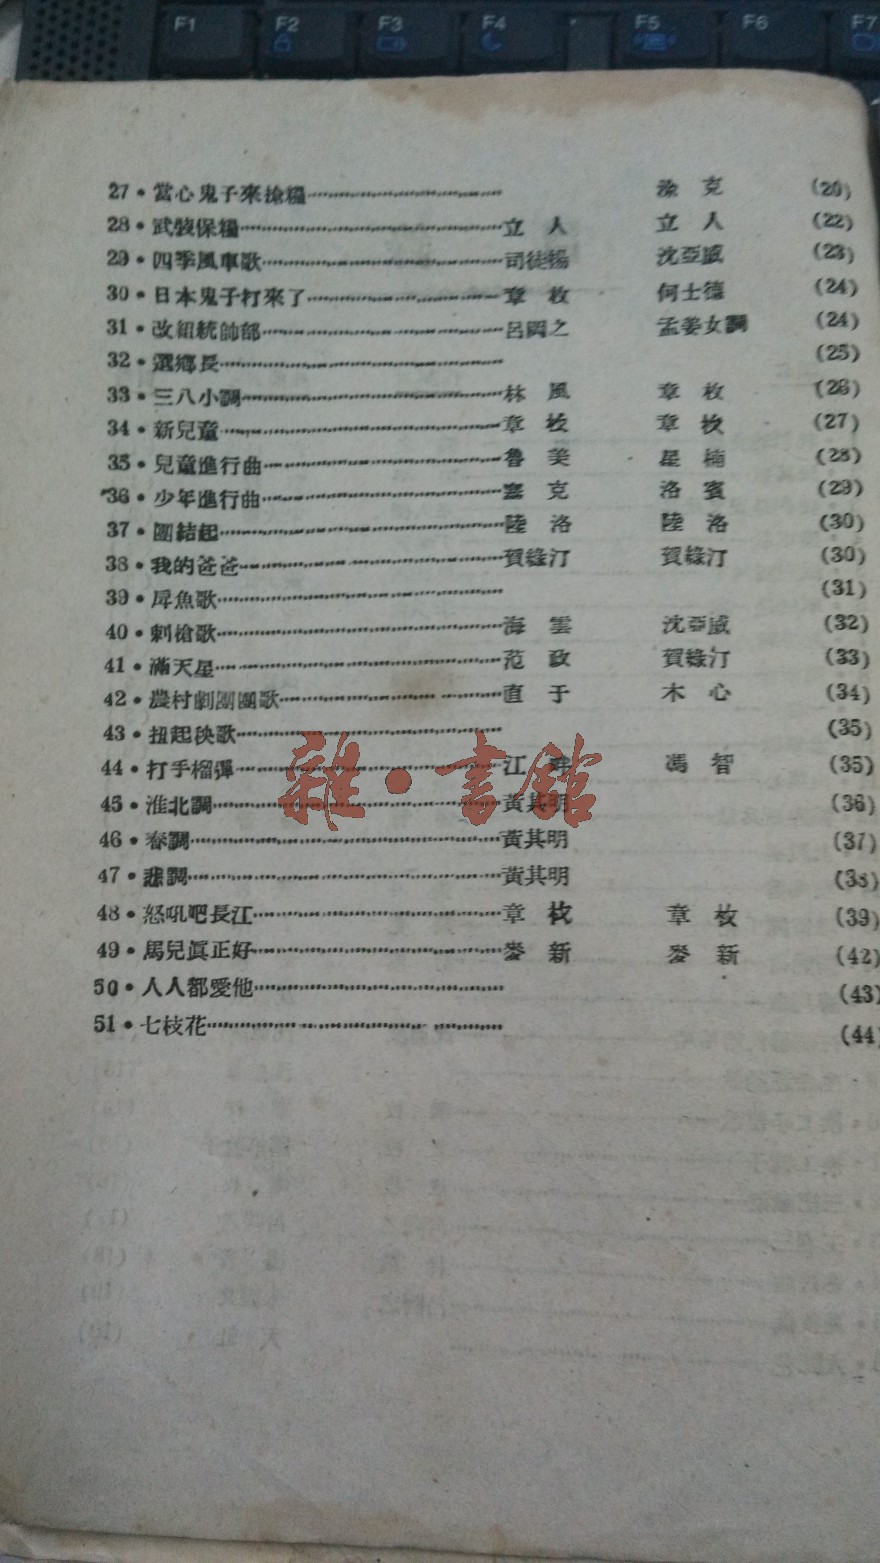 F1 F2 F3 F4 F5 F6 F7
27·當心鬼子來搶糧 涂 克 (20)
28·武裝保糧 立 人 立 人 (22)
29·四季風車歌 司徒揚 沈亞威 (23)
30·日本鬼子打來了 章 枚 何士德 (24)
31·改組統帥部 呂岡之 孟姜女調 (24)
32·選鄉長 (25)
33·三八小調 林 風 章 枚 (26)
34·新兒童 章 枚 章 枚 (27)
35·兒童進行曲 魯 美 星 楠 (28)
36·少年進行曲 塞 克 洛 賓 (29)
37·團結起 陸 洛 陸 洛 (30)
38·我的爸爸 賀綠汀 賀綠汀 (30)
39·戽魚歌 (31)
40·刺槍歌 海 雲 沈亞威 (32)
41·滿天星 范 政 賀綠汀 (33)
42·農村劇團團歌 直 于 木 心 (34)
43·扭起秧歌 (35)
44·打手榴彈 江 馮 智 (35)
45·淮北調 黃其明 (36)
46·春調 黃其明 (37)
47·悲調 黃其明 (38)
48·怒吼吧長江 章 枚 章 枚 (39)
49·馬兒眞正好 麥 新 麥 新 (42)
50·人人都愛他 (43)
51·七枝花 (44)
雜·書館